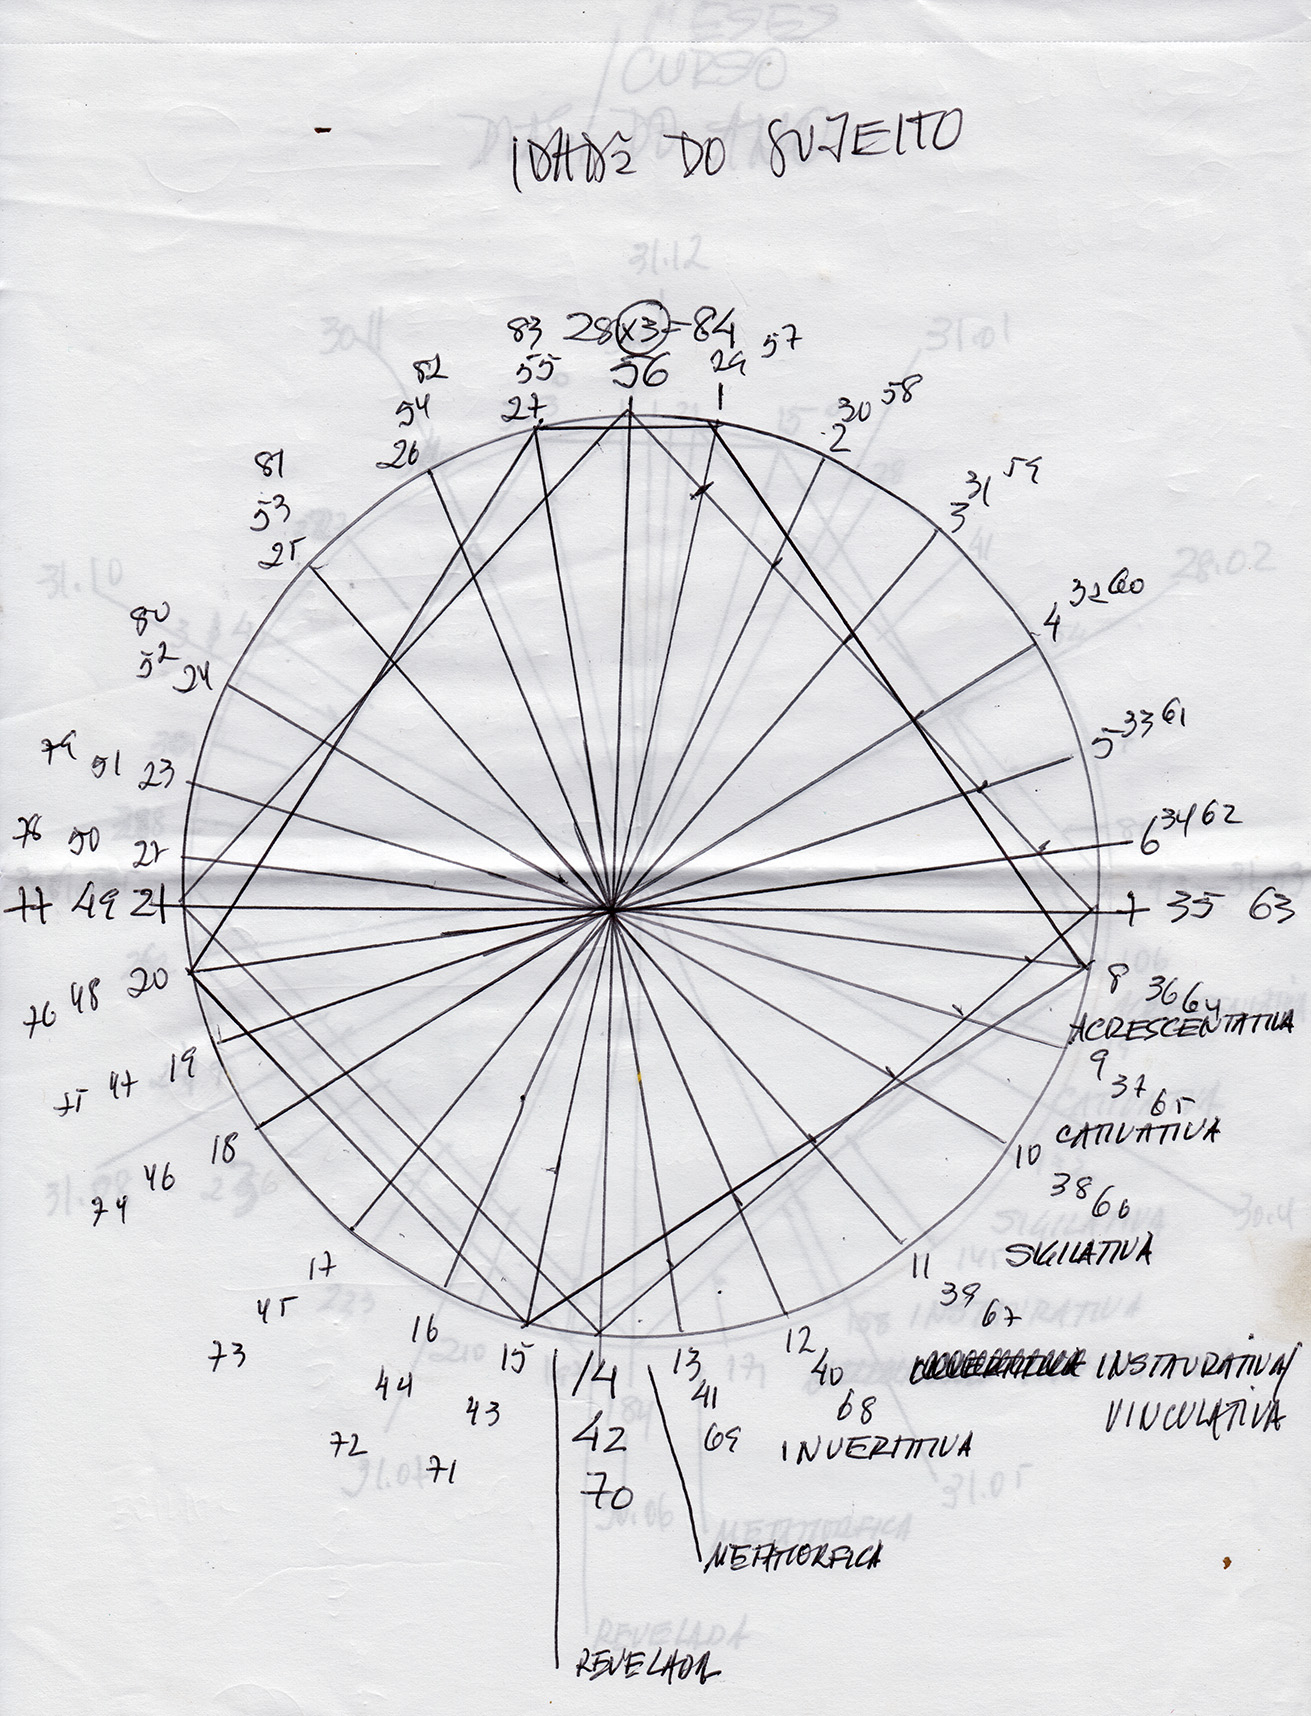 IDADE DO SUJEITO
83 28 x3 = 84
55 56 29 57
27 1
82
54
26
2 30 58
81
53
25
3 31 59
80
52 24
4 32 60
79 51 23
5 33 61
78 50 22
6 34 62
77 49 21
7 35 63
76 48 20
8 36 64
ACRESCENTATIVA
75 47 19
9 37 65
CATIVATIVA
74 46 18
10 38 66
SIGILATIVA
17
45
73
11 39 67
INSTAURATIVA/
VINCULATIVA
16
44
72
12 40 68
INVERTITIVA
15
43
71
14
42
70
13
41
69
METAMORFICA
REVELADA
MESES
CURSO
31.12
30.11
31.01
31.10
28.02
30.4
31.05
30.06
METAMORFICA
REVELADA